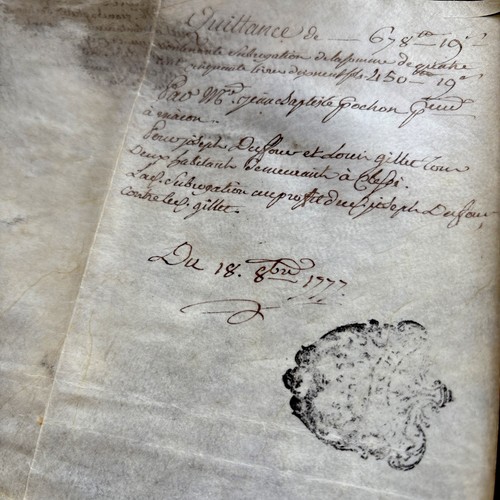 Quittance de — 678 tt 19 s
contenante subrogation de la somme de quatre
cent cinquante livres dix neuf sols 450 tt 19 s
Par Mr. jean baptiste pochon
à macon.
Pour joseph Dufour et Louis gillet tous
Deux habitants Demeurants à Clessi.
La de. subrogation au profit du d. joseph Dufour,
contre le d. gillet.
Du 18. 8bre 1777